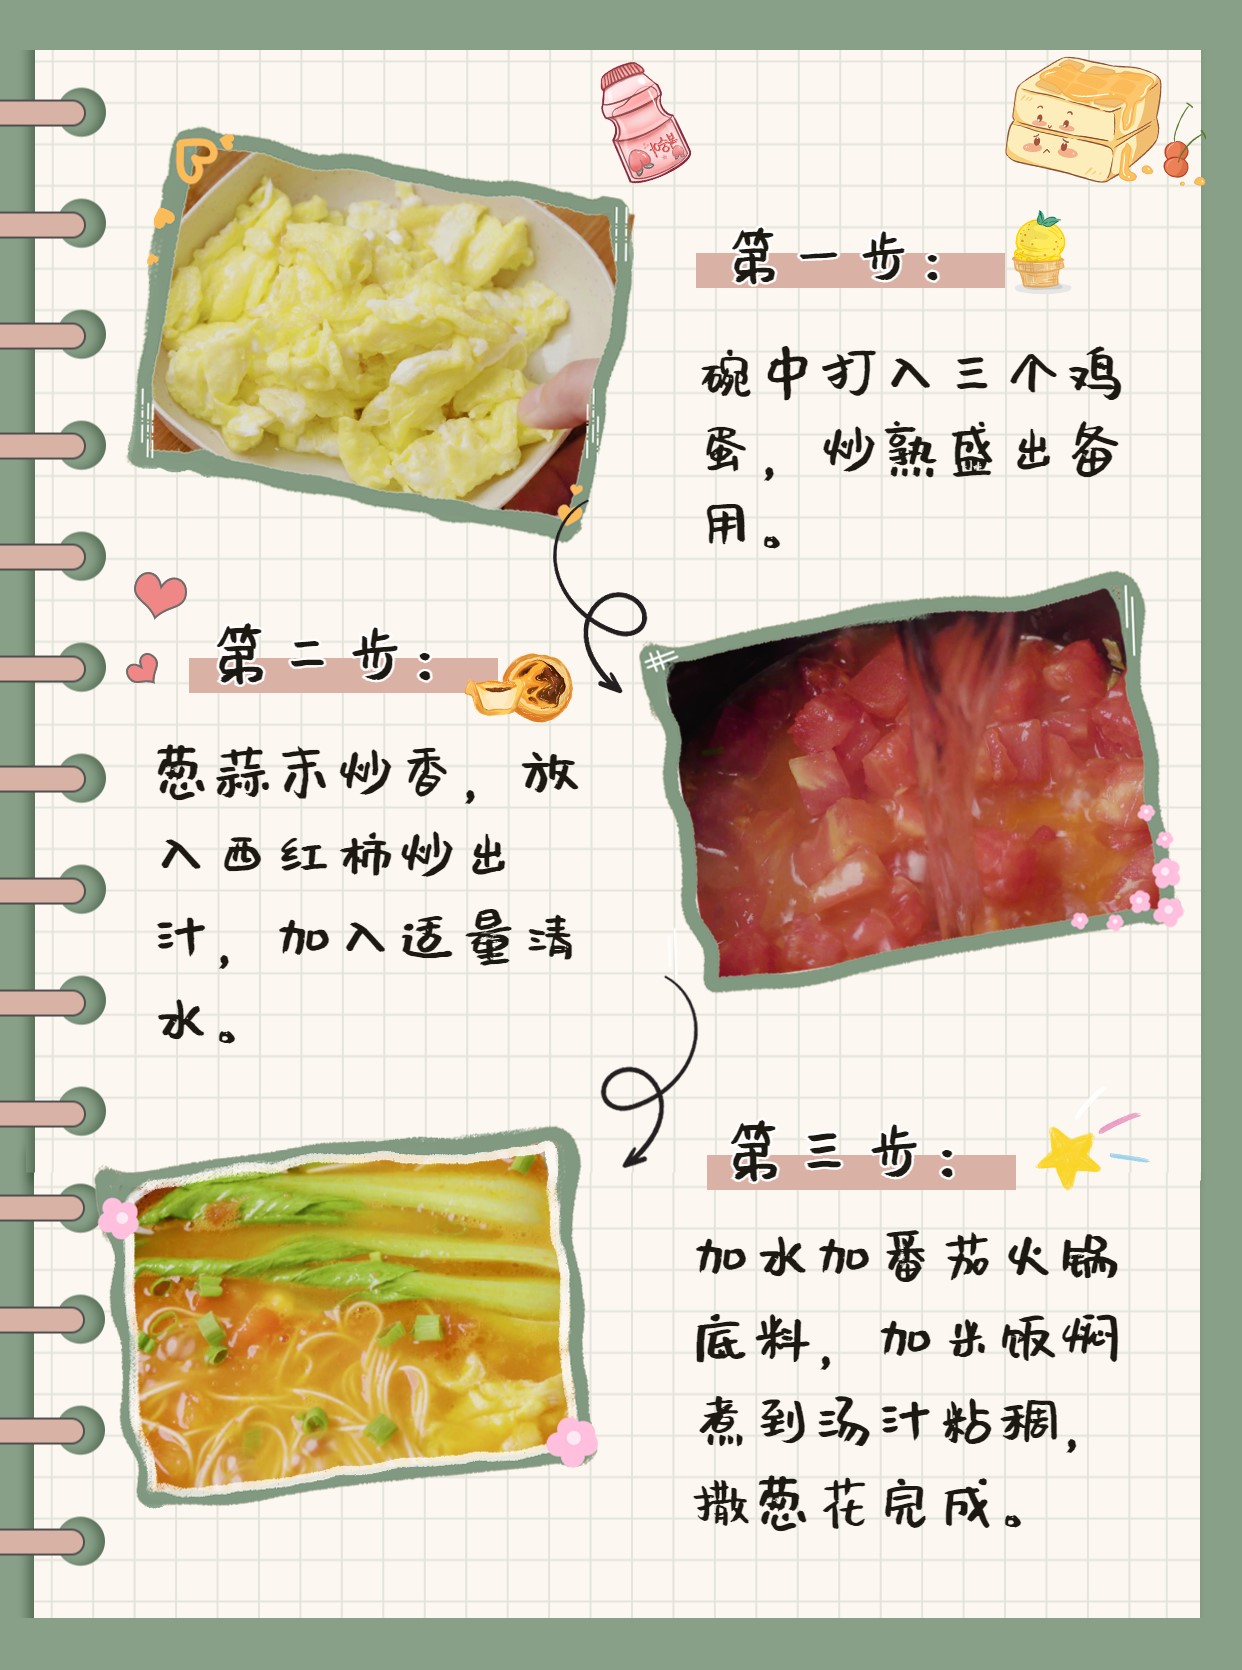 第一步：
碗中打入三个鸡
蛋，炒熟盛出备
用。
第二步：
葱蒜末炒香，放
入西红柿炒出
汁，加入适量清
水。
第三步：
加水加番茄火锅
底料，加米饭焖
煮到汤汁粘稠，
撒葱花完成。